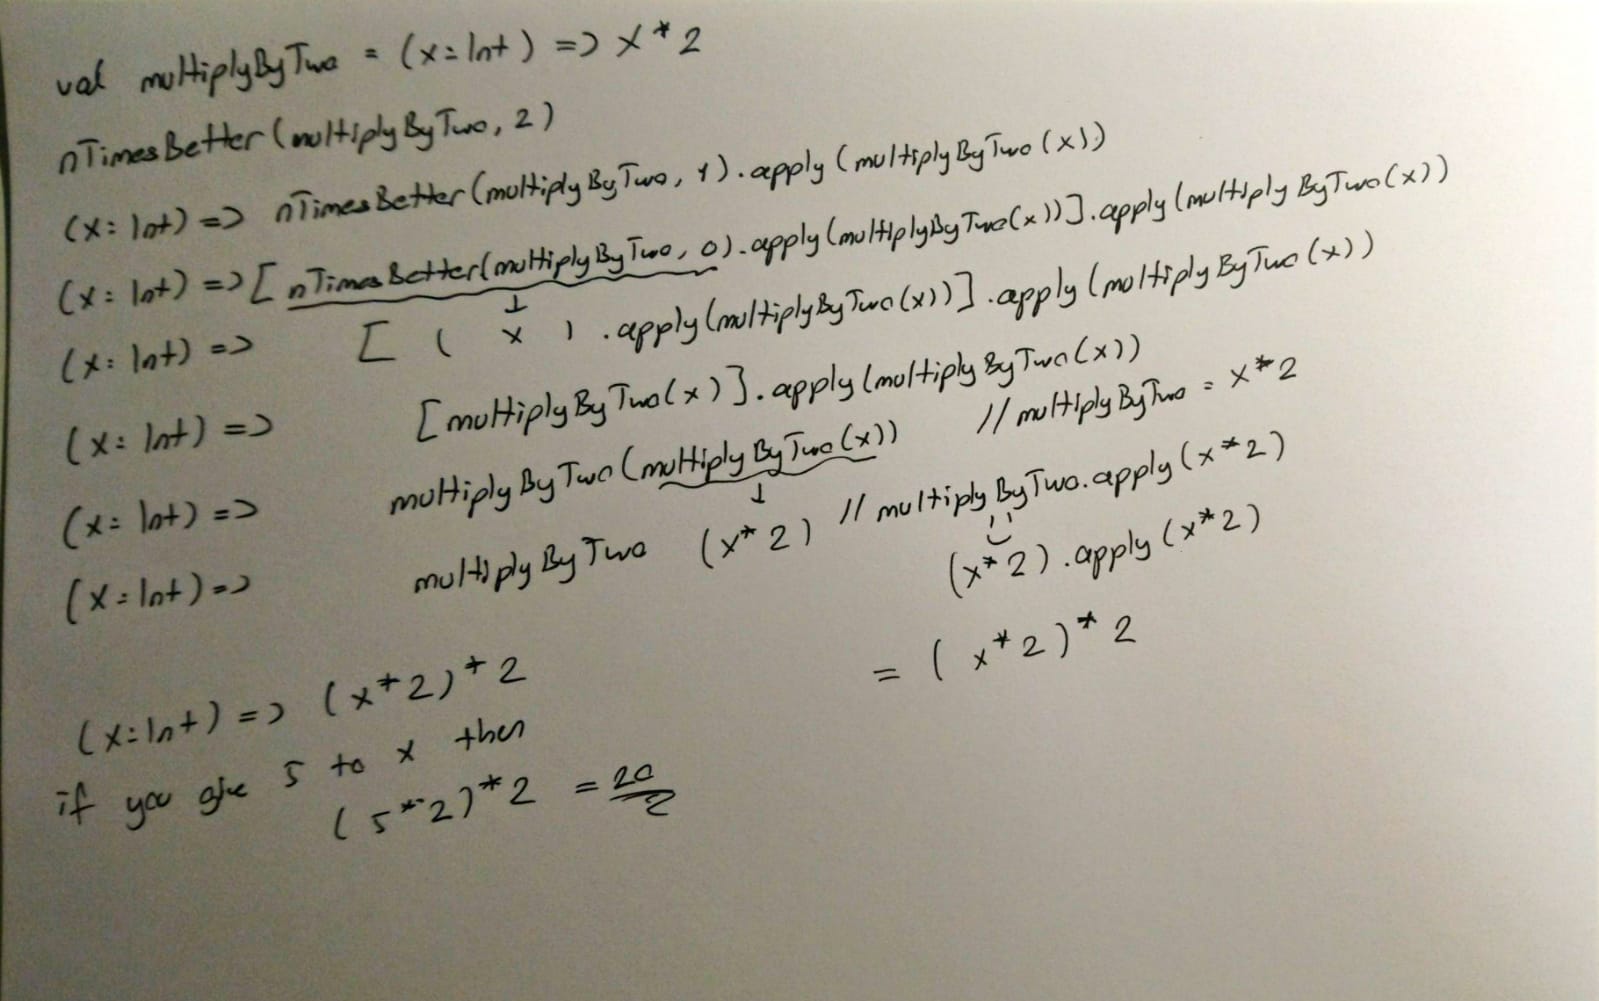 val multiplyByTwo = (x: Int) => x * 2
nTimesBetter(multiplyByTwo, 2)
(x: Int) => nTimesBetter(multiplyByTwo, 1).apply(multiplyByTwo(x))
(x: Int) => [nTimesBetter(multiplyByTwo, 0).apply(multiplyByTwo(x))].apply(multiplyByTwo(x))
(x: Int) => [ ( x ) .apply(multiplyByTwo(x))].apply(multiplyByTwo(x))
(x: Int) => [multiplyByTwo(x)].apply(multiplyByTwo(x))
(x: Int) => multiplyByTwo(multiplyByTwo(x)) // multiplyByTwo = x * 2
(x: Int) => multiplyByTwo (x * 2) // multiplyByTwo.apply(x * 2)
(x * 2).apply(x * 2)
= (x * 2) * 2
(x: Int) => (x * 2) * 2
if you give 5 to x then
(5 * 2) * 2 = 20